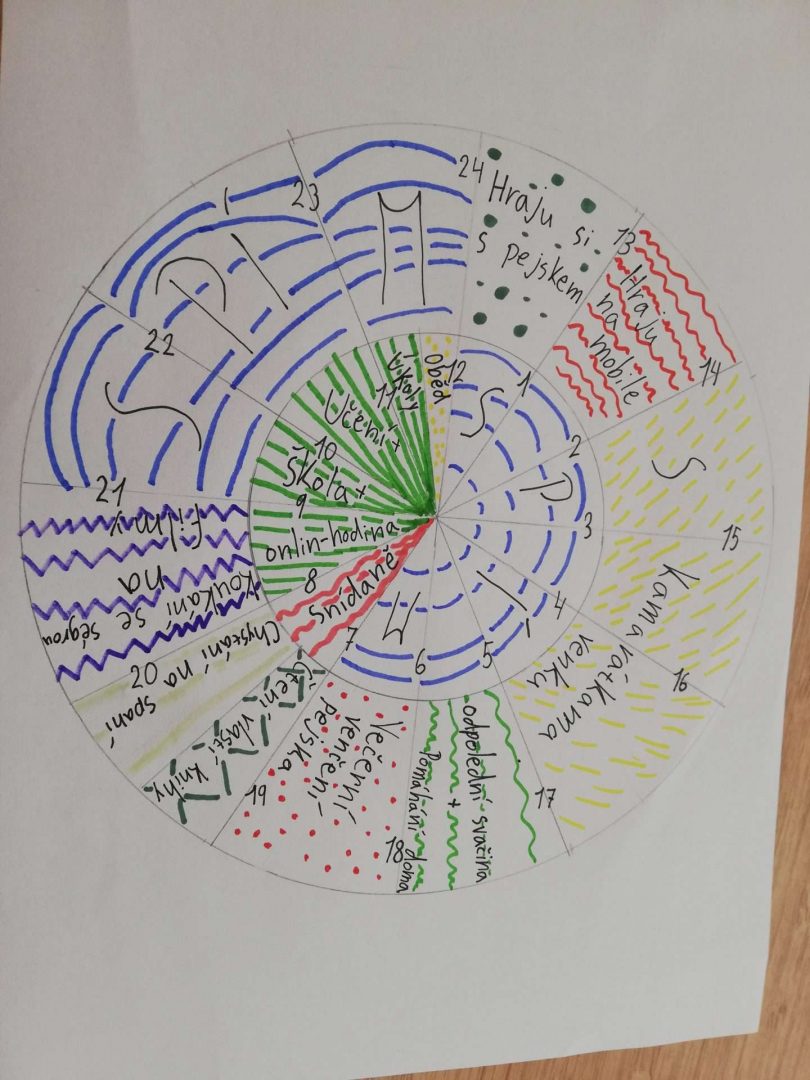 24
Hraju si
s pejskem
13
Hraju
na
mobile
14
S
15
kamarátkama
16
venku
17
odpolední svačina
+
Domáhání doma
18
Večerní
venčení
pejska
19
Čtení vlastí knihy
Chystání na
spaní
20
koukání se ségrou
na
filmy
21
S
22
P
Í
23
M
12
Oběd
1
S
2
P
3
4
Í
5
6
M
7
snídaně
8
onlin-hodina
9
Škola +
10
Učení +
11
úkoly